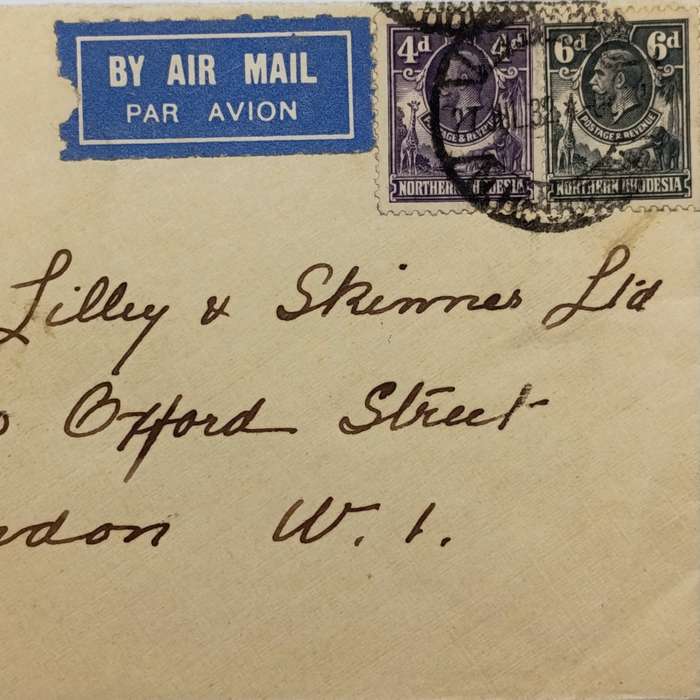 BY AIR MAIL
PAR AVION
4d 4d
POSTAGE & REVENUE
NORTHERN RHODESIA
6d 6d
POSTAGE & REVENUE
NORTHERN RHODESIA
Lilley & Skinner Ltd
Oxford Street
W. 1.